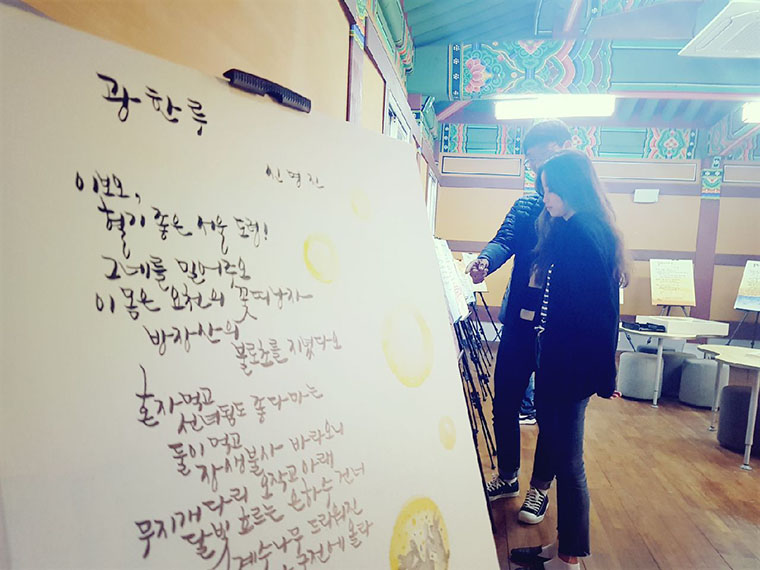 광한루
신명진
이보오,
혈기 좋은 서울 도령!
그네를 밀어주오
이 몸은 요천의 꽃띠 남자
방장산의
불로초를 지녔다오
혼자 먹고
선녀됨도 좋다마는
둘이 먹고
장생불사 바라오니
무지개다리 오작교 아래
달빛 흐르는 은하수 건너
계수나무 드리워진